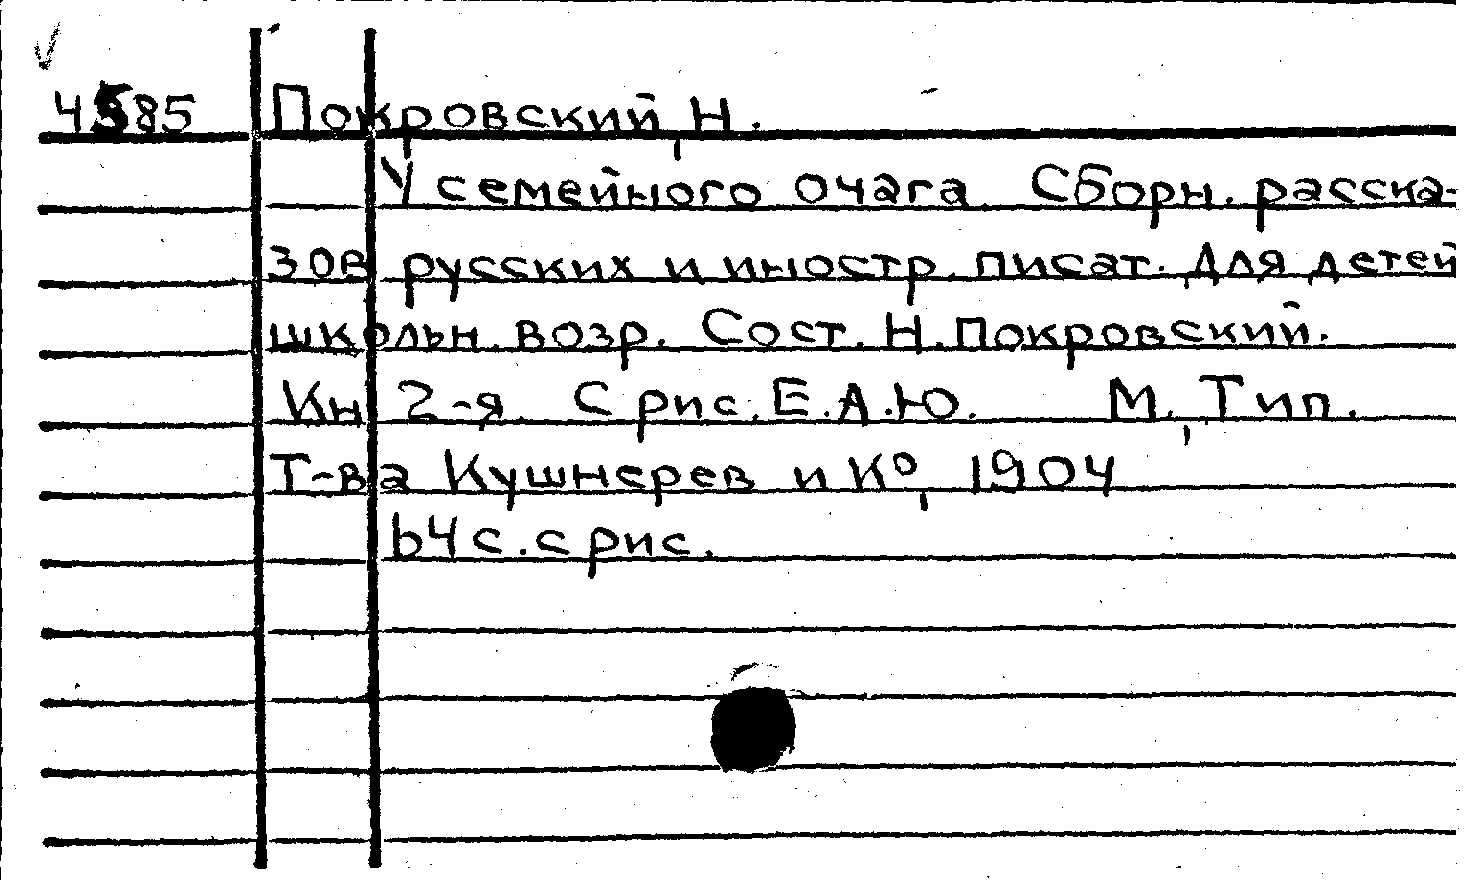 4585 Покровский, Н.
У семейного очага. Сборн. расска-
зов русских и иностр. писат. Для детей
школьн. возр. Сост. Н. Покровский.
Кн 2-я. С рис. Е.А.Ю. М., Тип.
Т-ва Кушнерев и К°, 1904
64 с. с рис.